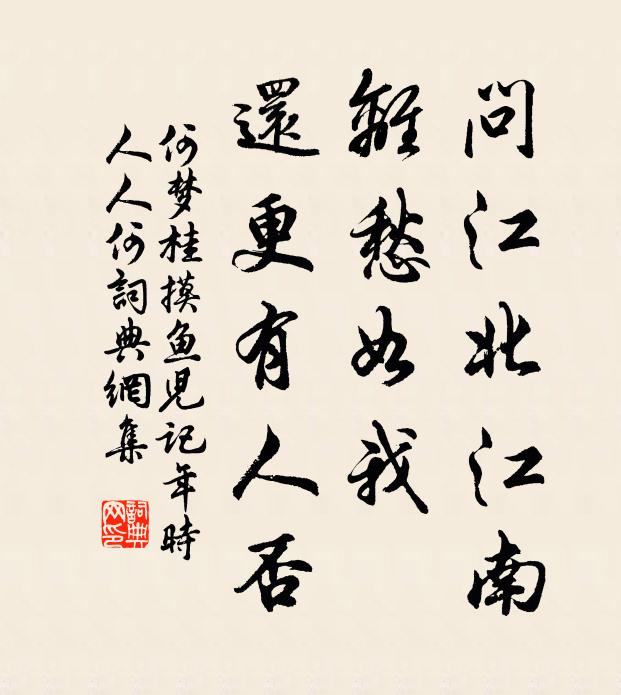 問江北江南
離愁如我
還更有人否
何梦桂摸魚児記年時
人人何詞典網集
詞典
网印